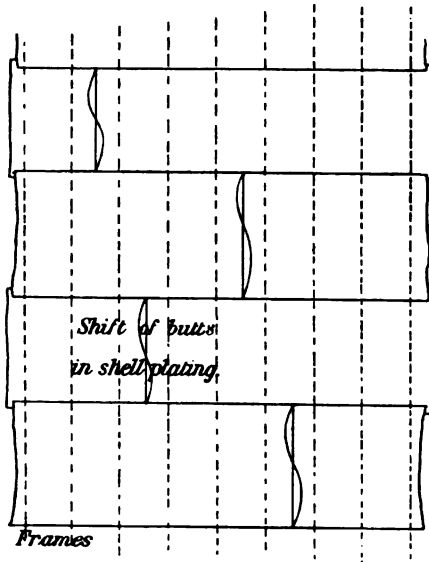 Shift of butts
in shell plating.
Frames